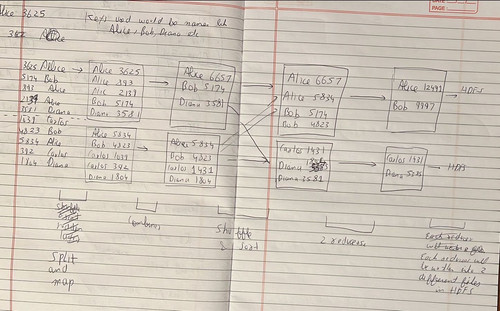 Alice 3625
Keys used would be names like
Alice, Bob, Diana etc
3625 Alice
5174 Bob
893 Alice
2139 Alice
3581 Diana
1039 Carlos
4823 Bob
5834 Alice
392 Carlos
1804 Diana
Alice 3625
Alice 893
Alic 2139
Bob 5174
Diana 3581
Alice 5834
Bob 4823
Carlos 1039
Carlos 392
Diana 1804
Alice 6657
Bob 5174
Diana 3581
Alice 5834
Bob 4823
Carlos 1431
Diana 1804
Alice 6657
Alice 5834
Bob 5174
Bob 4823
Carlos 1431
Diana 1804
Diana 3581
Alice 12491
Bob 9997
HDFS
Carlos 1431
Diana
HDFS
split
and
map
Combiner
Shuffle
& sort
2 reducers
Each reducer
Each reducer will
be written into 2
different files
in HDFS